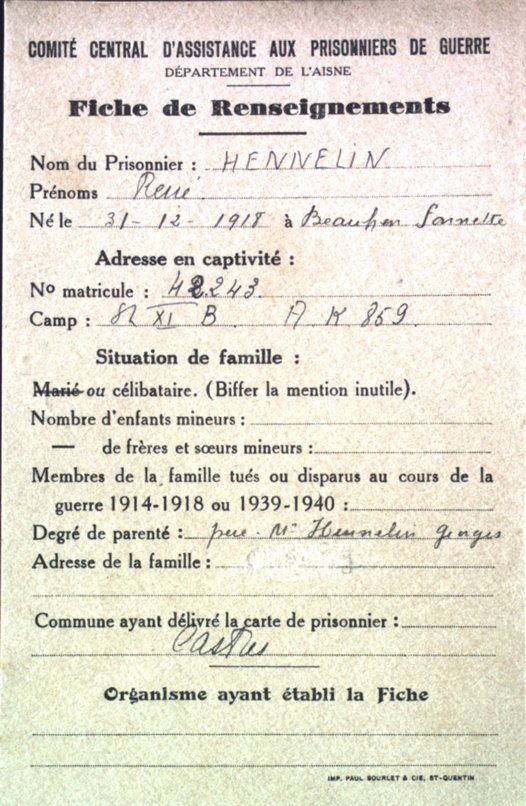 COMITÉ CENTRAL D'ASSISTANCE AUX PRISONNIERS DE GUERRE
DÉPARTEMENT DE L'AISNE
Fiche de Renseignements
Nom du Prisonnier : HENNELIN
Prénoms René
Né le 31 - 12 - 1918 à
Adresse en captivité :
No matricule : 42.243.
Camp : St XI B A K 859
Situation de famille :
Marié ou célibataire. (Biffer la mention inutile).
Nombre d'enfants mineurs :
— de frères et sœurs mineurs :
Membres de la famille tués ou disparus au cours de la
guerre 1914-1918 ou 1939-1940 :
Degré de parenté : père. Mr Hennelin Georges
Adresse de la famille :
Commune ayant délivré la carte de prisonnier :
Castres
Organisme ayant établi la Fiche
IMP. PAUL BOURLET & CIE, ST-QUENTIN